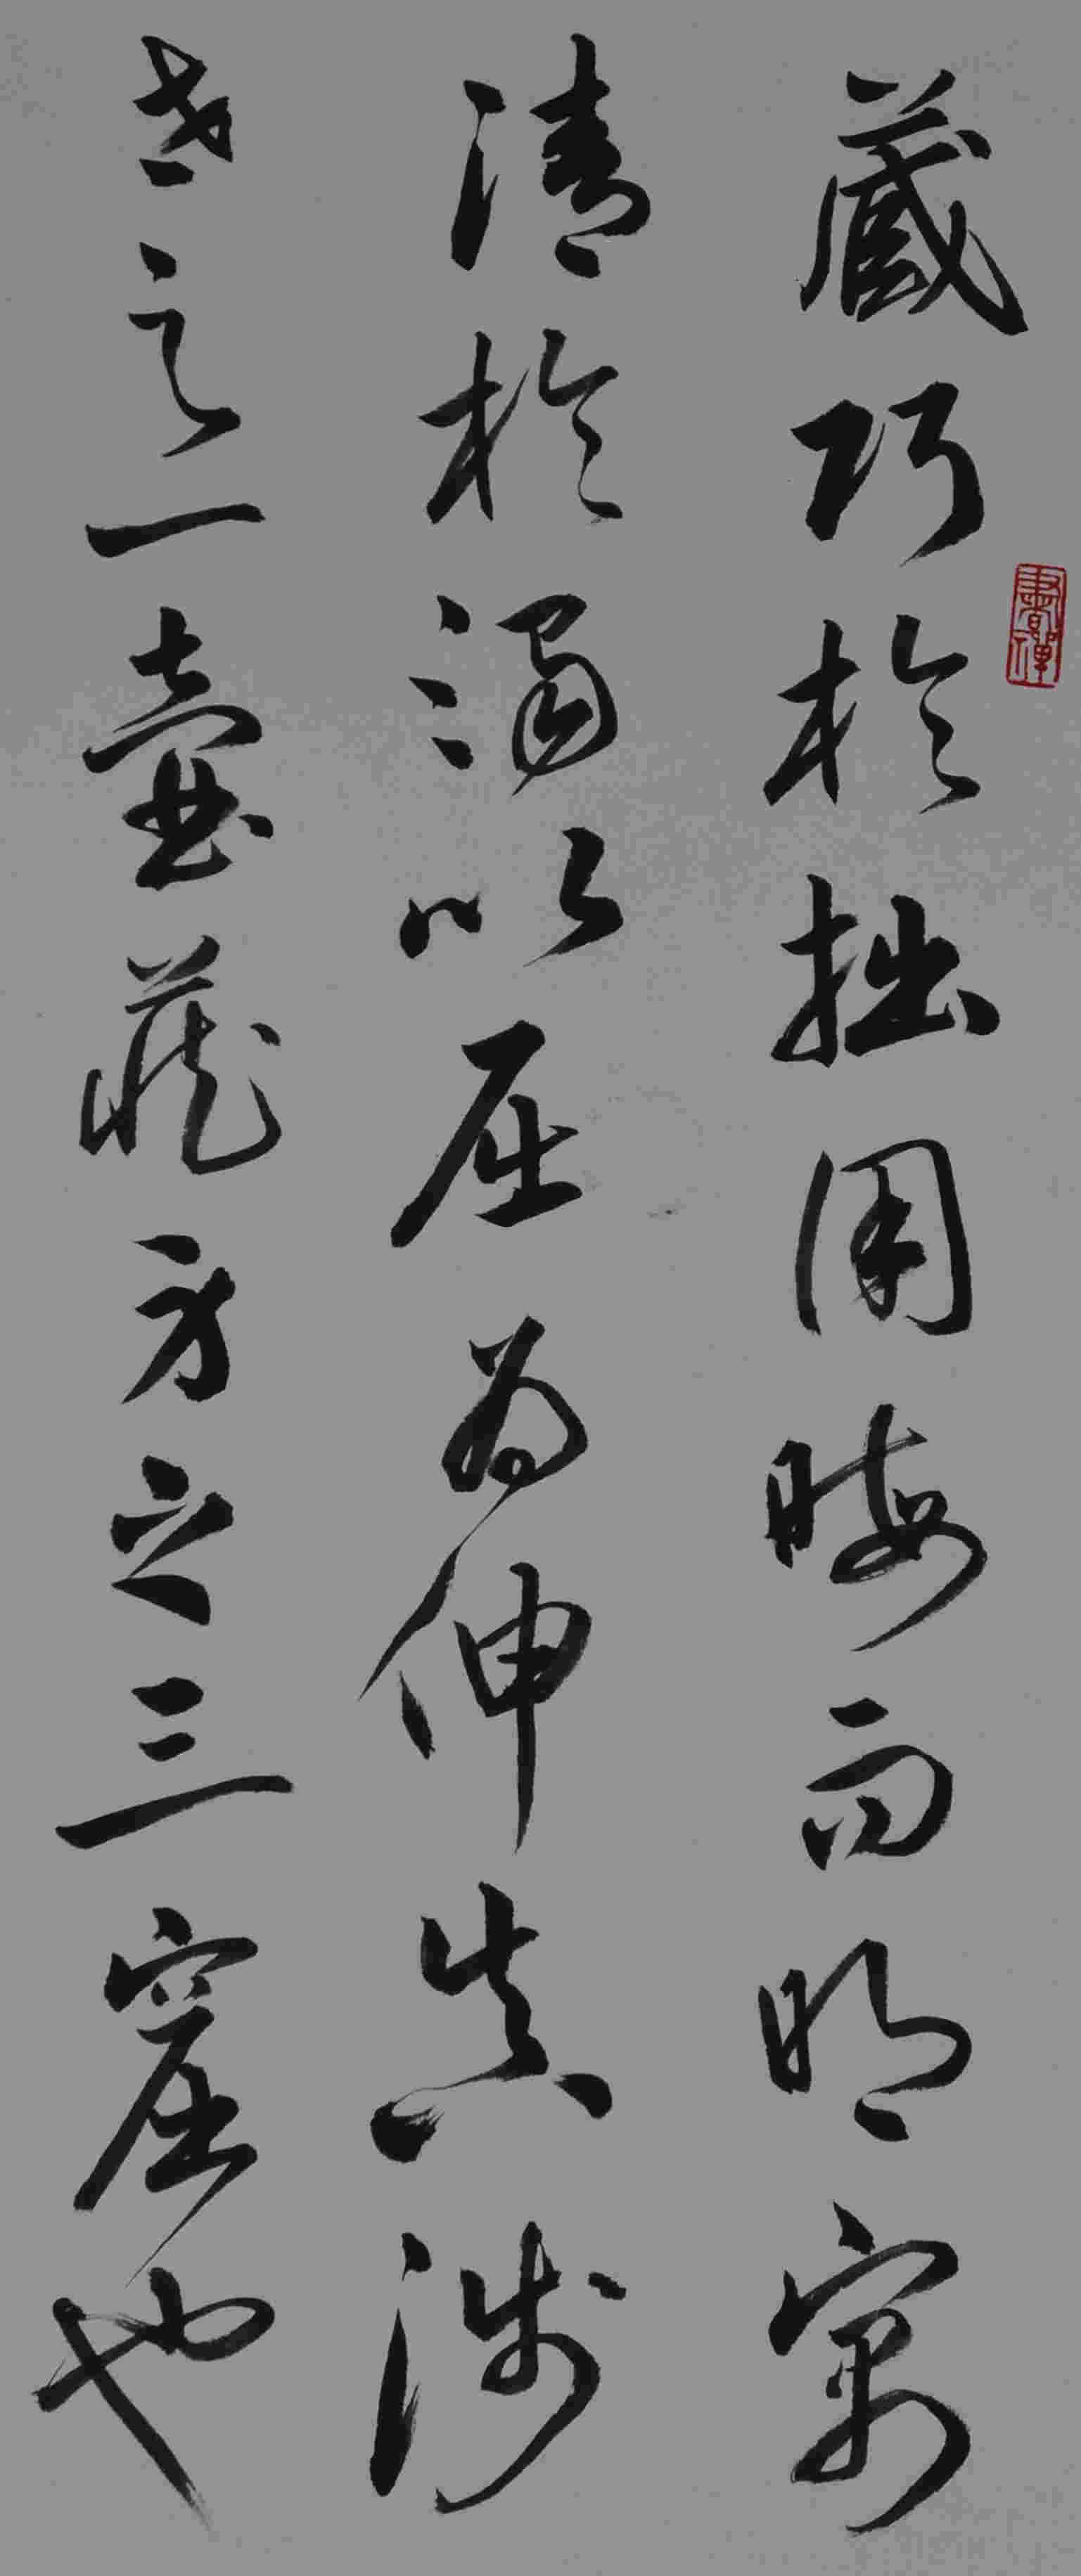 藏巧於拙用晦而明寓
清於濁以屈為伸真涉
世之一壺藏身之三窟也